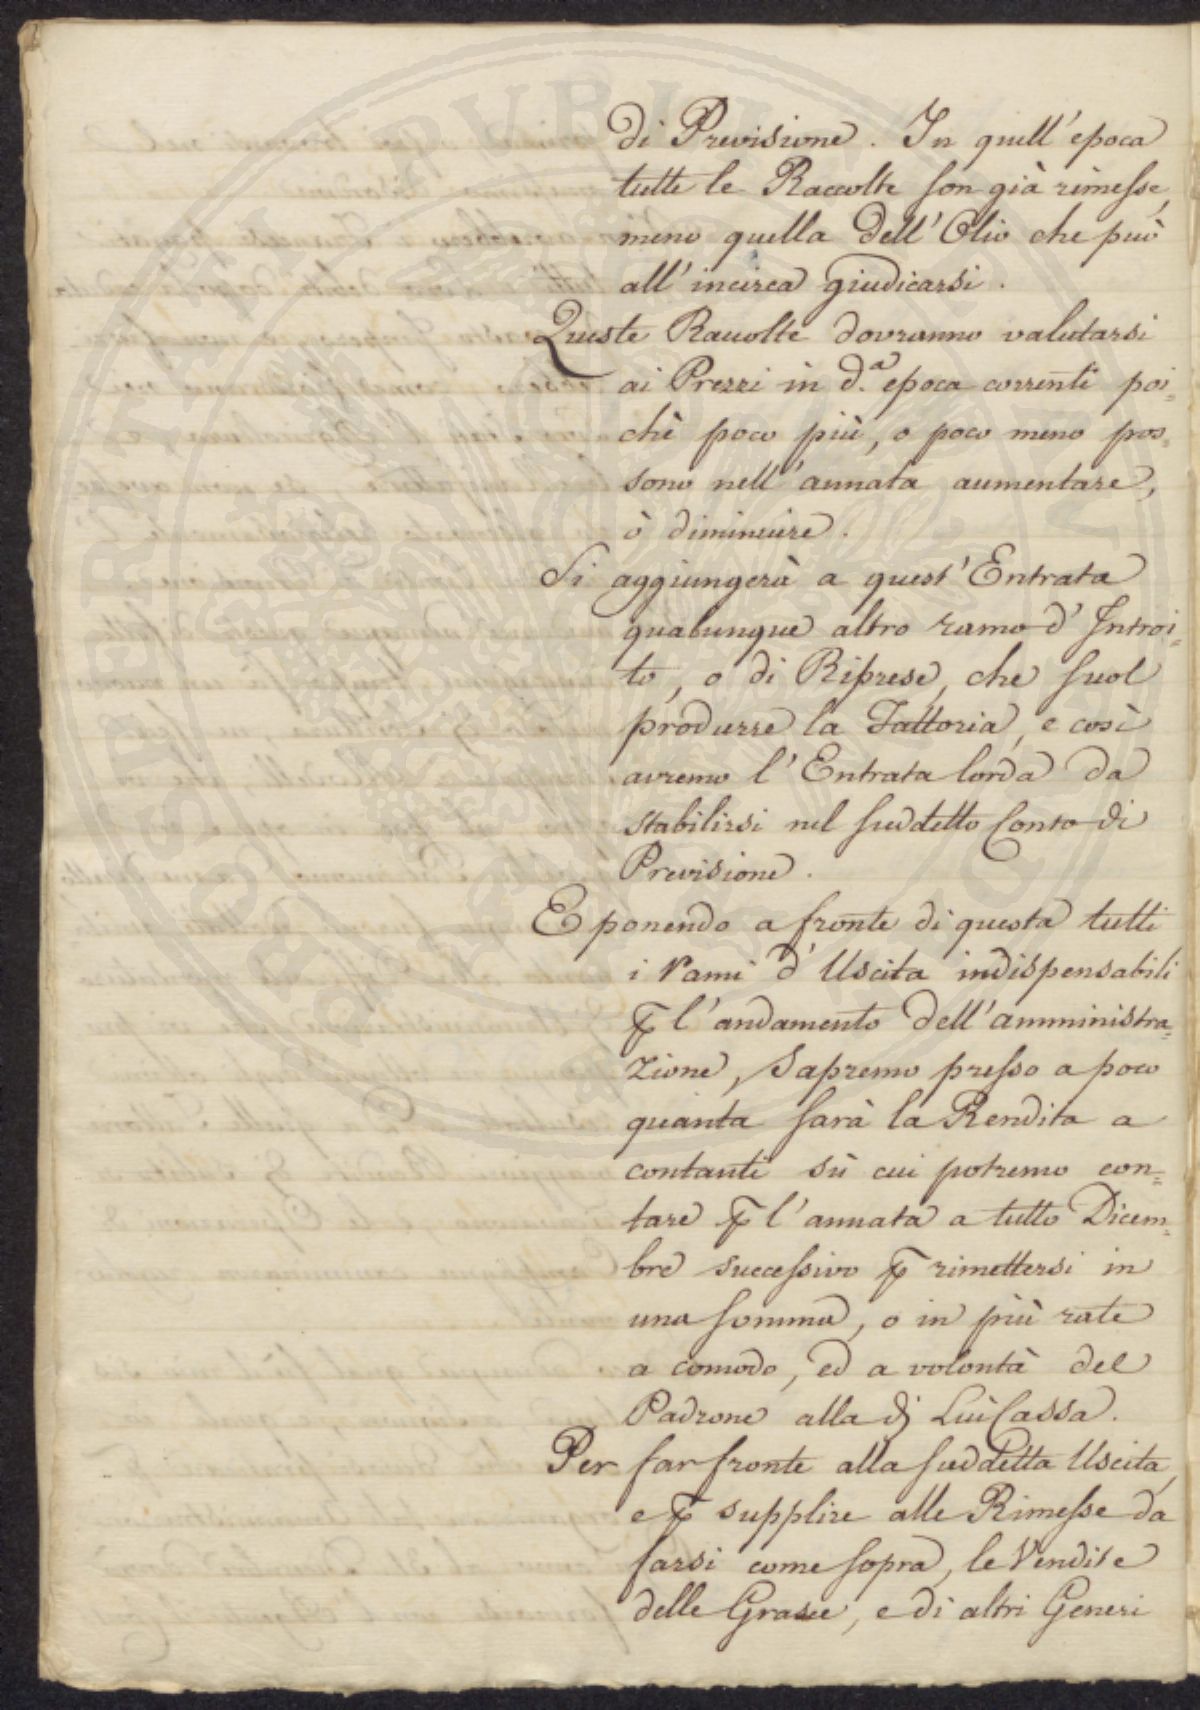 di Previsione. In quell'epoca
tutte le Raccolte son già rimesse,
meno quella dell'Olio che può
all'incirca giudicarsi.
Queste Raccolte dovranno valutarsi
ai Prezzi in d.ª epoca correnti poi=
chè poco più, o poco meno pos=
sono nell'annata aumentare,
ò diminuire.
Si aggiungerà a quest'Entrata
qualunque altro ramo d'Introi=
to, o di Riprese, che suol
produrre la Fattoria, e così
avremo l'Entrata lorda da
stabilirsi nel suddetto Conto di
Previsione.
E ponendo a fronte di questa tutti
i rami d'Uscita indispensabili
ꝑ l'andamento dell'amministra=
zione, Sapremo presso a poco
quanta sarà la Rendita a
contanti sù cui potremo con=
tare ꝑ l'annata a tutto Dicem=
bre successivo ꝑ rimettersi in
una somma, o in più rate
a comodo, ed a volontà del
Padrone alla di Lui Cassa.
Per far fronte alla suddetta Uscita,
e ꝑ supplire alle Rimesse da
farsi come sopra, le Vendite
delle Grasce, e di altri Generi